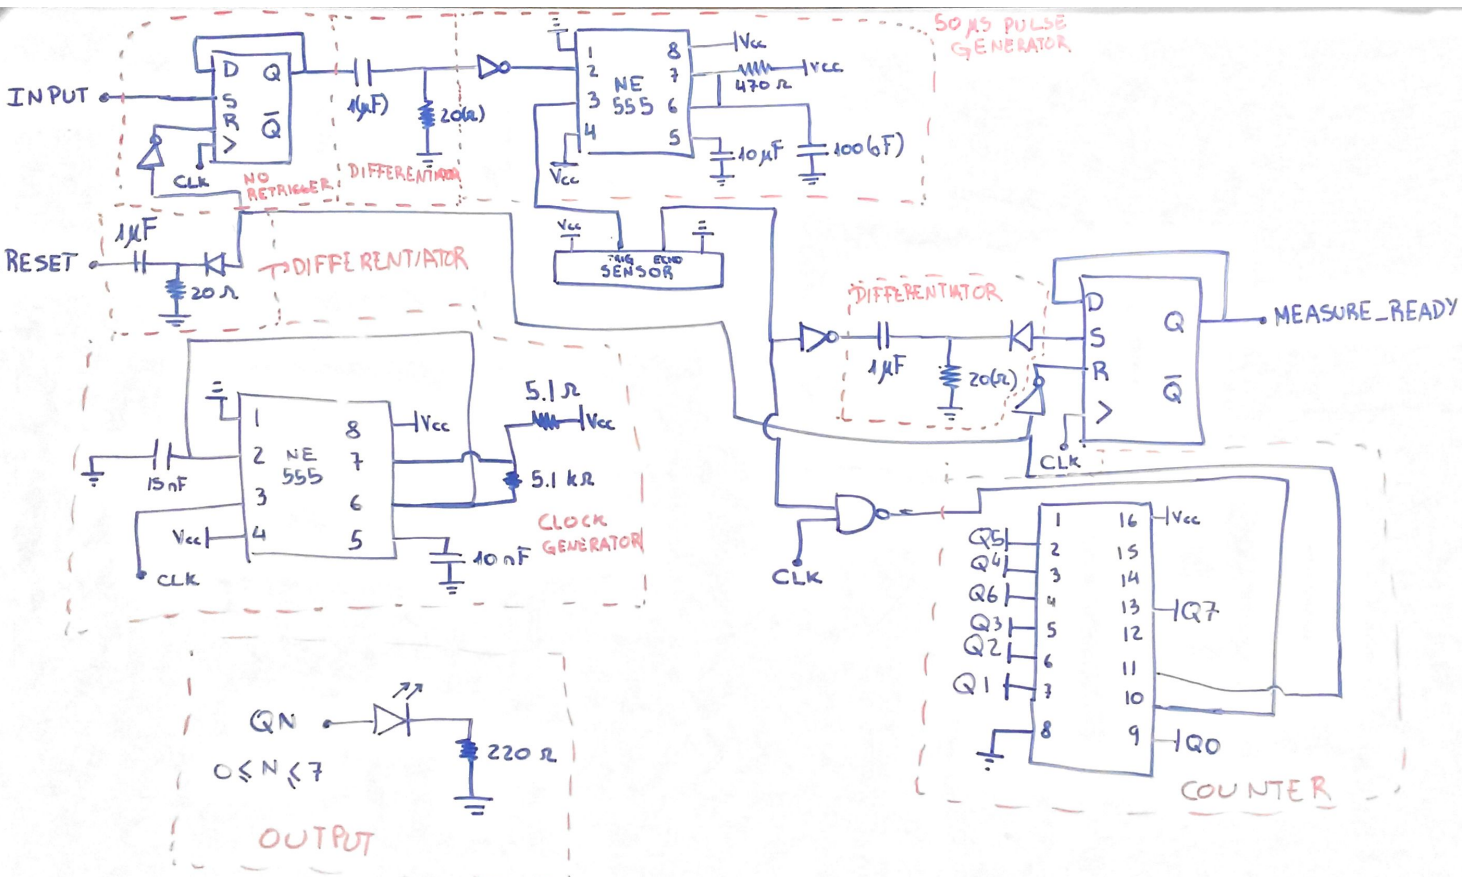 50 μS PULSE
GENERATOR
INPUT
D
Q
S
R
Q̅
>
CLK
NO
RETRIGGER
1(μF)
20(Ω)
DIFFERENTIATOR
1
2
3
4
NE
555
8
7
6
5
Vcc
470 Ω
Vcc
10 μF
Vcc
RESET
1μF
20 Ω
DIFFERENTIATOR
Vcc
TRIG
ECHO
SENSOR
DIFFERENTIATOR
1μF
20(Ω)
D
S
R
>
Q
Q̅
CLK
MEASURE_READY
1
2
3
4
NE
555
8
7
6
5
Vcc
5.1 Ω
Vcc
5.1 kΩ
15nF
Vcc
CLK
10 nF
CLOCK
GENERATOR
CLK
Q5
Q4
Q6
Q3
Q2
Q1
1
2
3
4
5
6
7
8
16
15
14
13
12
11
10
9
Vcc
Q7
Q0
COUNTER
QN
0≤N≤7
220 Ω
OUTPUT